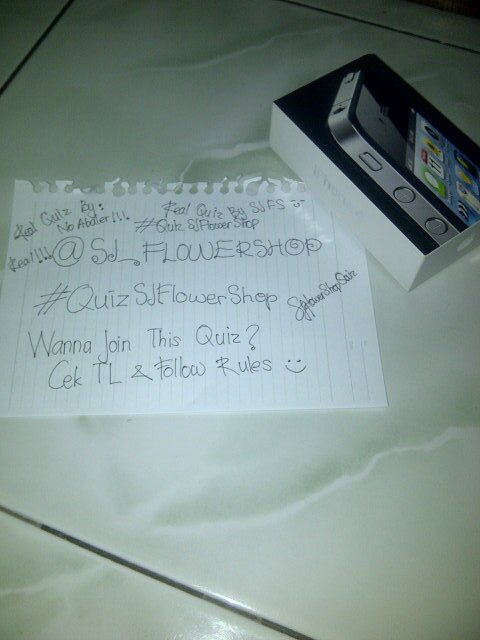 Real Quiz By:
No Abater!!!
Real Quiz By SJFS :)
#QuizSJFlowerShop
Real!!! @SJ_FLOWERSHOP
#QuizSJFlowerShop
SJFlowerShopQuiz
Wanna Join This Quiz?
Cek TL & Follow Rules :)
iPhone 4